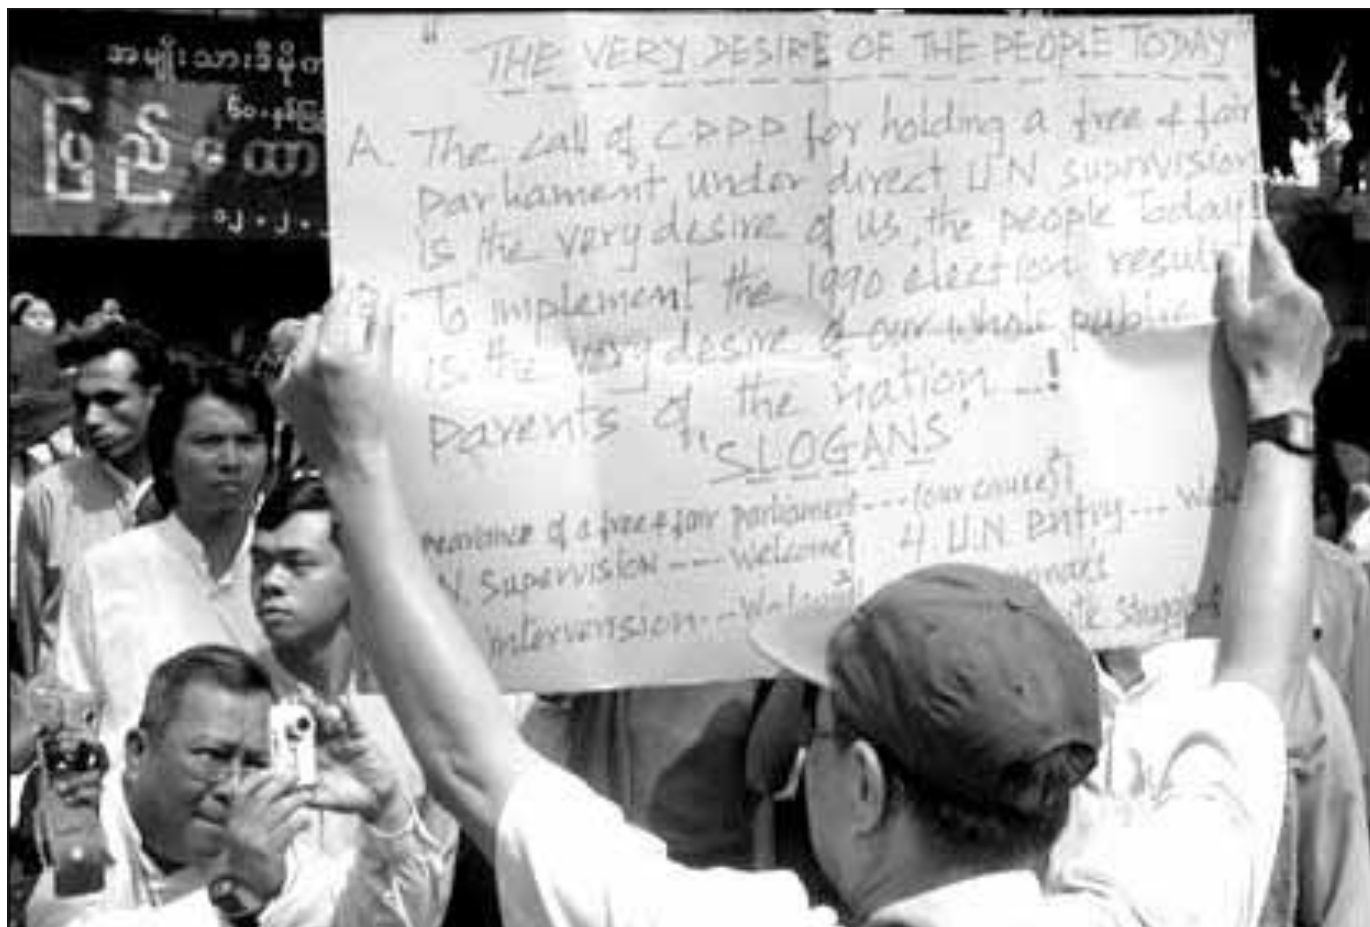 အမျိုးသားဒီမိုက
၆၀-နှစ်ပြ
ပြည်ထော
၁၂.၂.
" THE VERY DESIRE OF THE PEOPLE TODAY"
A. The call of CRPP for holding a free & fair
parliament under direct U N supervision
is the very desire of us, the people Today!
To implement the 1990 election result
is the very desire of our whole public
parents of the nation --!
"SLOGANS"
of a free & fair parliament --- (our cause)!
N. Supervision --- Welcome! 4 U.N. Entry --- Wel
intervension -- Welcome!